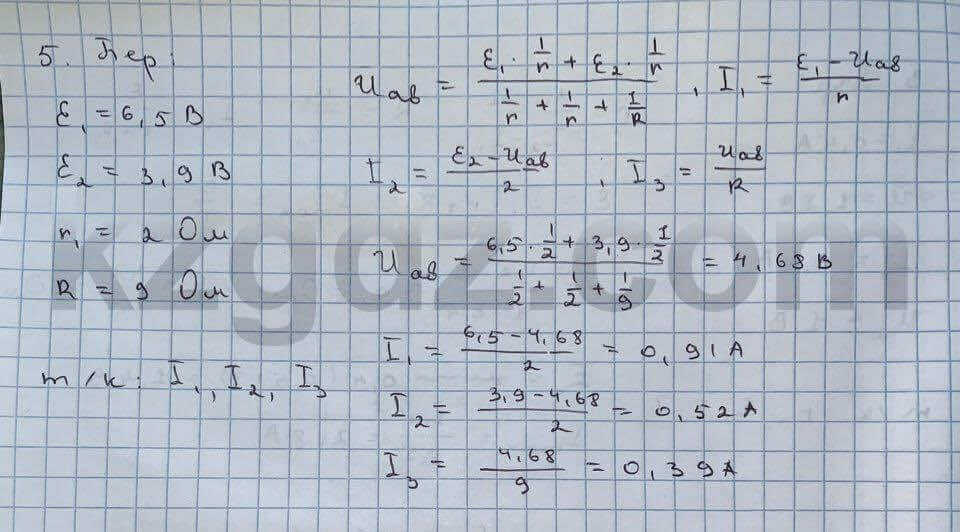 5. Бер:
ε₁ = 6,5 В
ε₂ = 3,9 В
r₁ = 2 Ом
R = 9 Ом
т/к: I₁, I₂, I₃
Uав = (ε₁ · 1/r + ε₂ · 1/r) / (1/r + 1/r + 1/R), I₁ = (ε₁ - Uав) / r
I₂ = (ε₂ - Uав) / 2 ; I₃ = Uав / R
Uав = (6,5 · 1/2 + 3,9 · 1/2) / (1/2 + 1/2 + 1/9) = 4,68 В
I₁ = (6,5 - 4,68) / 2 = 0,91 А
I₂ = (3,9 - 4,68) / 2 = 0,52 А
I₃ = 4,68 / 9 = 0,39 А
kzgdz.com